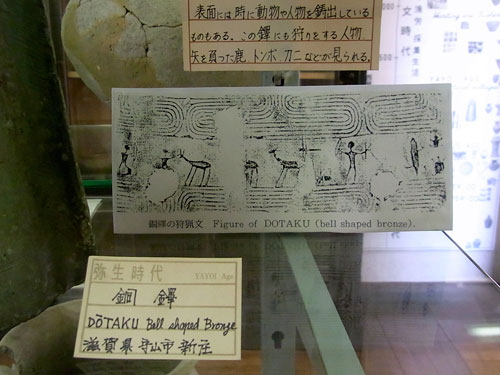 表面には時に動物や人物を鋳出している
ものもある。この鐸にも狩りをする人物
矢を負った鹿、トンボ、カニなどが見られる。
銅鐸の狩猟文 Figure of DOTAKU (bell shaped bronze).
弥生時代 YAYOI Age
銅鐸
DŌTAKU Bell shaped Bronze
滋賀県守山市新庄